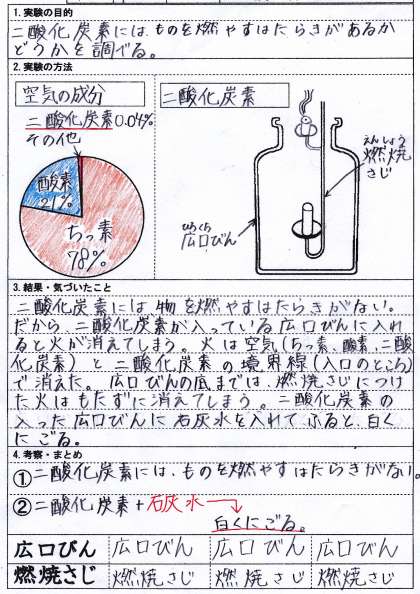 1. 実験の目的
二酸化炭素には、ものを燃やすはたらきがあるか
どうかを調べる。
2. 実験の方法
空気の成分
二酸化炭素
二酸化炭素0.04%
その他
酸素
21%
ちっ素
78%
えんしょう
燃焼
さじ
ひろくち
広口びん
3. 結果・気づいたこと
二酸化炭素には物を燃やすはたらきがない。
だから、二酸化炭素が入っている広口びんに入れ
ると火が消えてしまう。火は空気(ちっ素、酸素、二酸
化炭素)と二酸化炭素の境界線(入口のところ)
で消えた。広口びんの底までは、燃焼さじにつけ
た火はもたずに消えてしまう。二酸化炭素の
入った広口びんに石灰水を入れてふると、白く
にごる。
4. 考察・まとめ
①二酸化炭素には、ものを燃やすはたらきがない。
②二酸化炭素+石灰水
白くにごる。
広口びん 広口びん 広口びん 広口びん
燃焼さじ 燃焼さじ 燃焼さじ 燃焼さじ